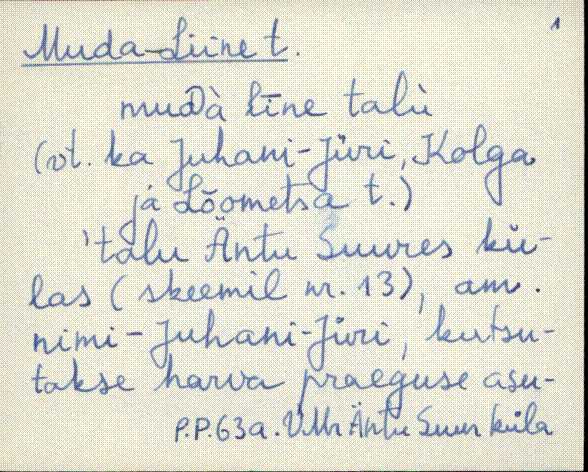 1
Muda-Liine t.
muDà līne talù
(vt. ka Juhani-Jüri, Kolga
ja Lõometsa t.)
'talu Äntu Suures kü-
las (skeemil nr. 13), am.
nimi - Juhani-Jüri, kutsu-
takse harva praeguse asu-
P.P.63a. VMr Äntu Suur küla